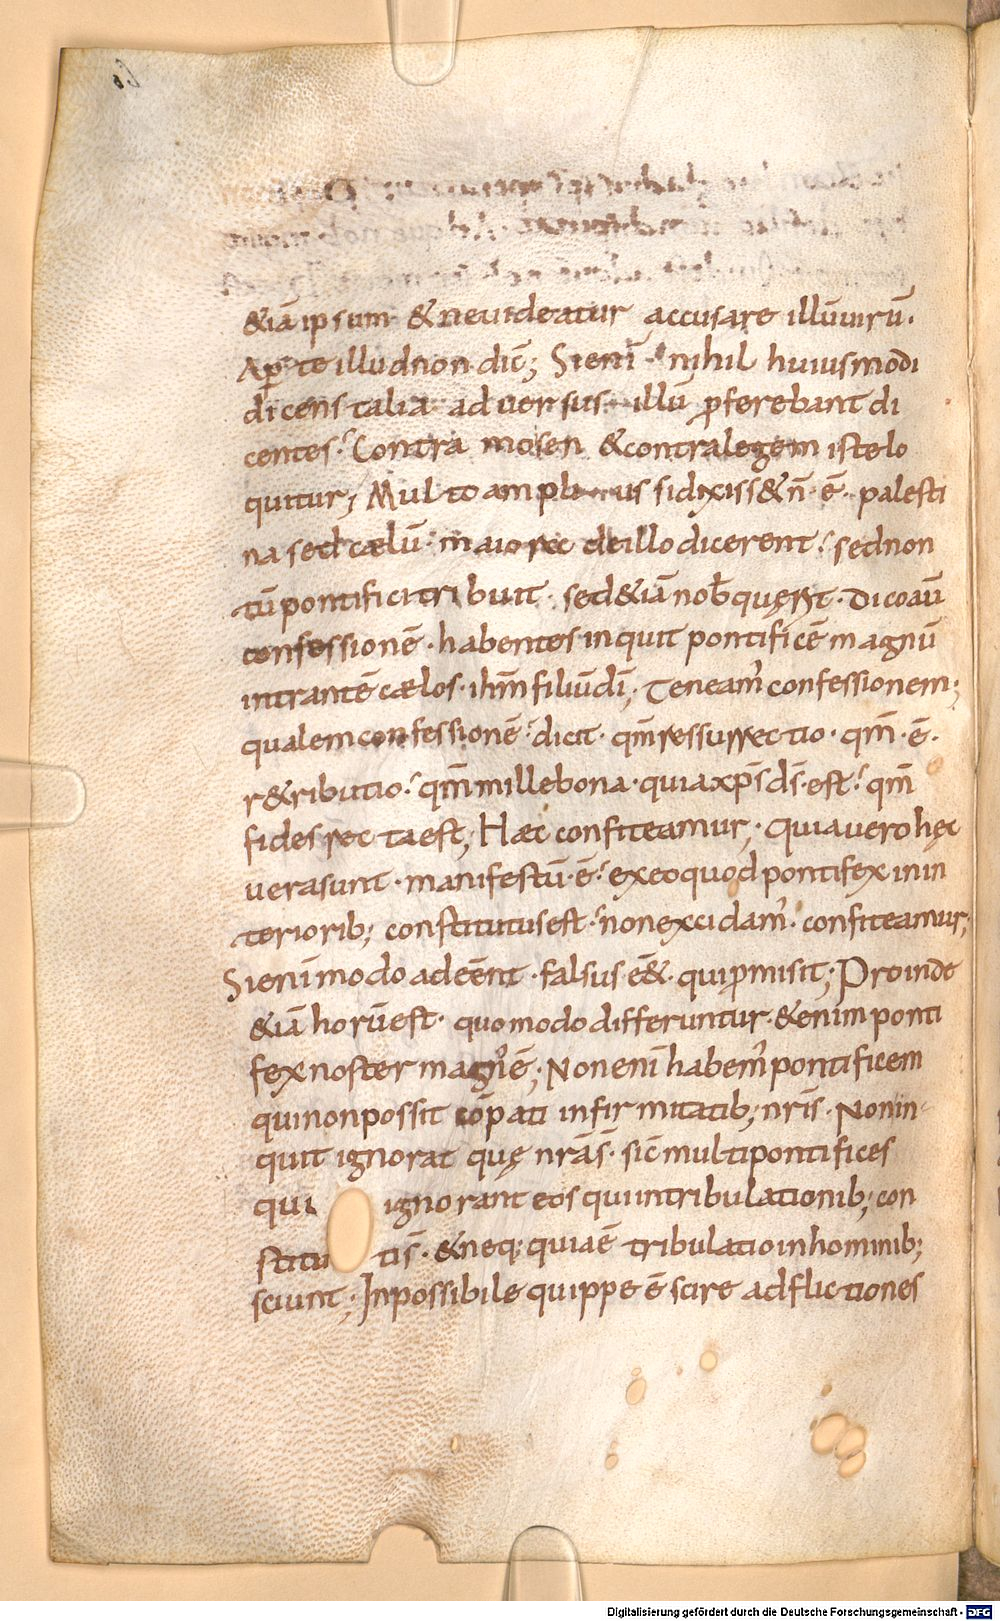 &iā ipsum &neuideatur accusare illū uirū·
Aperte illud non dic̄; Si enī nihil huiusmodi
dicens talia aduersus illū p̄ferebant di
centes· Contra mosen &contra legem iste lo
quitur; Multo amplius si dixiss& n̄·ē· palesti
na sed cælū· maiorec deillo dicerent· sed non
tū pontifici tribuit· sed&iā nob̄ quęrit· dico aū
confessionē· habentes inquit pontificē magnū
intrantē cælos· ih̄m filiū dī; Teneam̓ confessionem;
qualem confessionē dicit· qm̄ ressurrectio· qm̄·ē·
r&ributio· qm̄ mille bona· quia xp̄s d̄s·est· qm̄
fides rec ta est; Hæc confiteamur; quia uero hęc
uera sunt· manifestū·ē· exeo quod pontifex in in
teriorib; constitutus est· non excidam̓· confiteamur;
Si enī modo adeēnt· falsus ē&· qui p̄misit; Proinde
&iā horū est· quomodo differuntur· &enim ponti
fex noster magn̓ ē; Non enī habem̓ pontificem
qui non possit cōpati infirmitatib; nr̄is· Non in
quit ignorat quę nr̄ās· sic̄ multi pontifices
qui ignorant eos qui intribulationib; con
stitu tis̄· &neq; quia ē tribulatio in hominib;
sciunt; Inpossibile quippe ē scire adflictiones
Digitalisierung gefördert durch die Deutsche Forschungsgemeinschaft - DFG